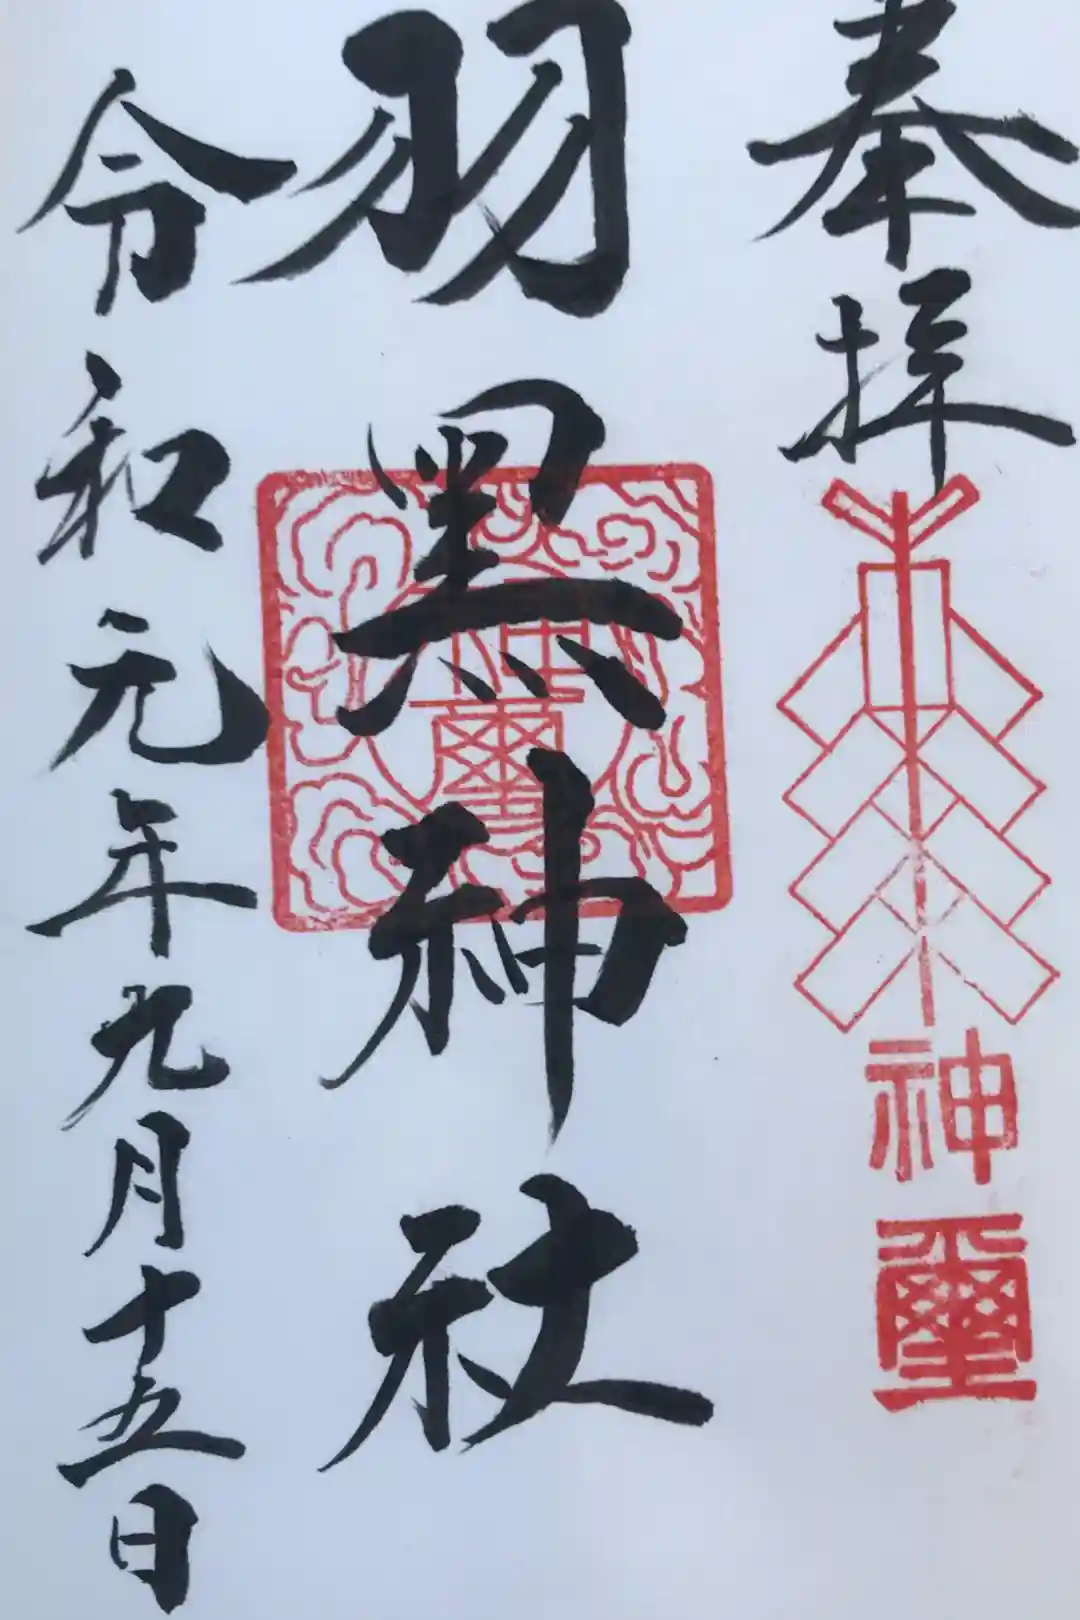 奉拝
神璽
羽黑神社
神璽
令和元年九月十五日